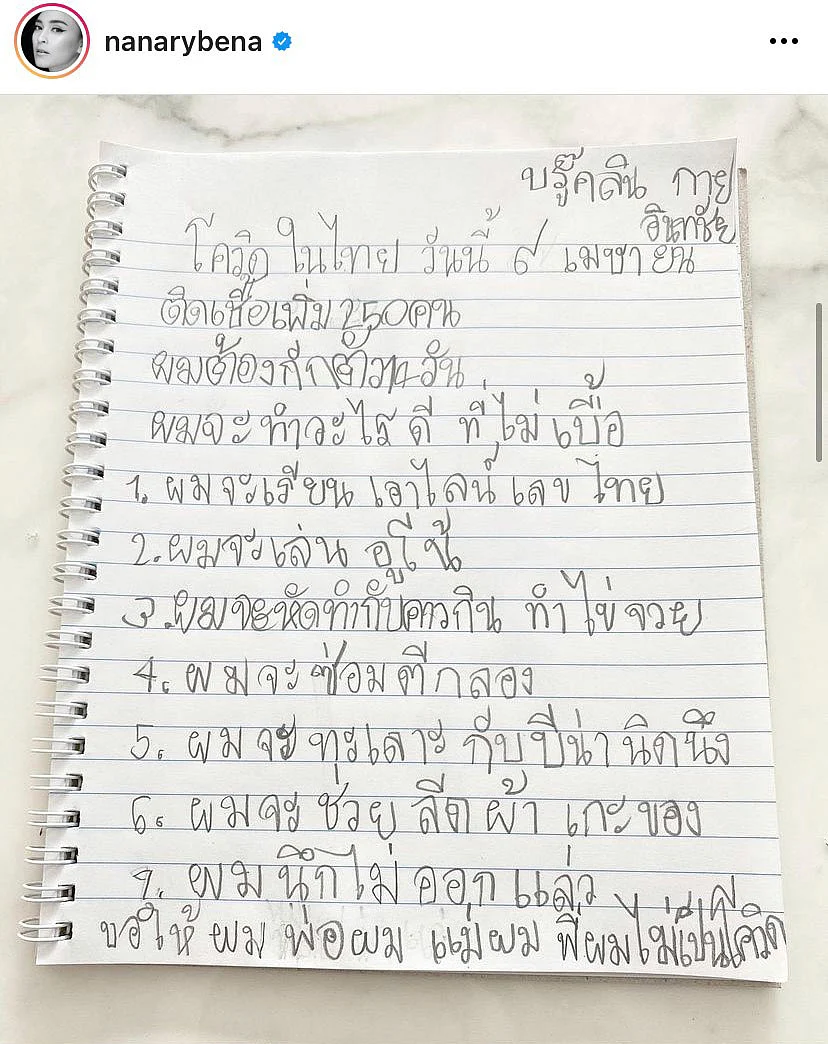 nanarybena
บรู๊คลิน กาย
อินทชัย
โควิด ในไทย วันนี้ ๙ เมษายน
ติดเชื้อเพิ่ม 250 คน
ผมต้องกักตัว 14 วัน
ผมจะ ทำอะไร ดี ที่ ไม่ เบื่อ
1. ผมจะเรียน เอาไลน์ เลข ไทย
2. ผมจะเล่น อูโน่
3. ผมจะหัดทำกับคาวกิน ทำ ไข่ จวย
4. ผมจะ ซ่อมตีกลอง
5. ผมจะ ทะเลาะ กับปีน่า นิดนึง
6. ผมจะ ช่วย ลีดผ้า เกะของ
7. ผมนึกไม่ ออก แล่ว
ขอให้ ผม พ่อผม แม่ผม พี่ผมไม่เป็นโควิด